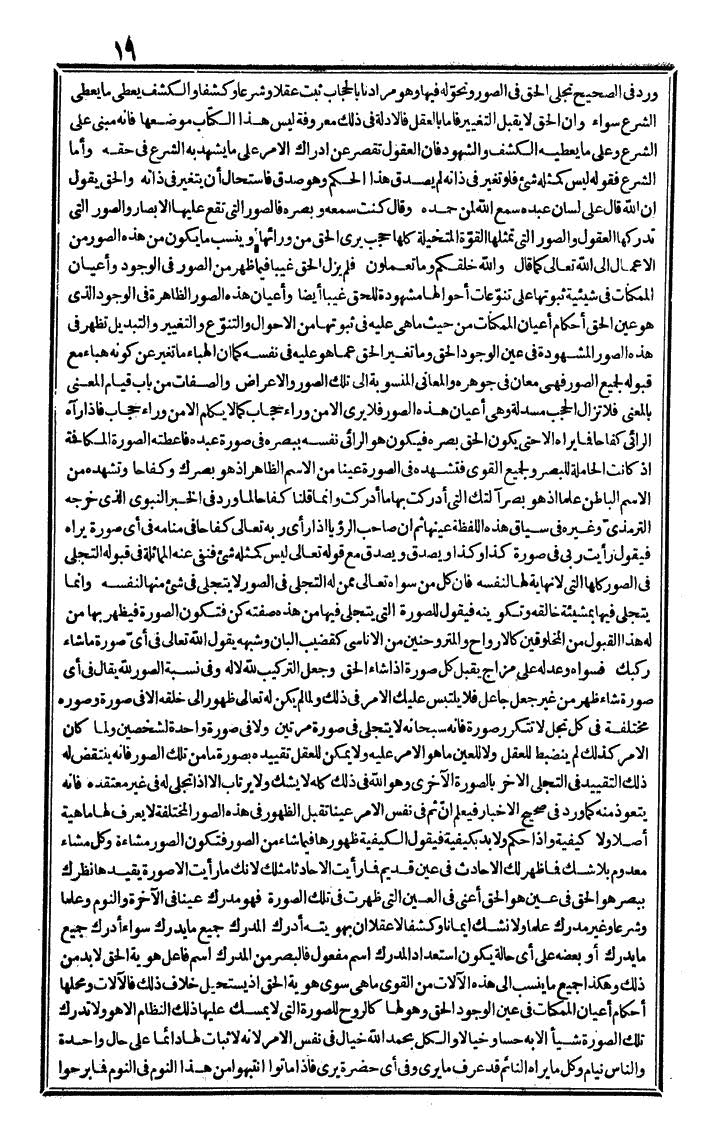 ١٩
ورد فى الصحيح تجلى الحق فى الصور وتحوّله فيها وهو مرادنا بالحجاب ثبت عقلا وشرعا وكشفا والكشف يعطى ما يعطى
الشرع سواء وان الحق لا يقبل التغيير فاما بالعقل فالادلة فى ذلك معروفة ليس هذا الكتاب موضعها فانه مبنى على
الشرع وعلى ما يعطيه الكشف والشهود فان العقول تقصر عن ادراك الامر على ما يشهد به الشرع فى حقه وأما
الشرع فقوله ليس كمثله شئ فلو تغير فى ذاته لم يصدق هذا الحكم وهو صدق فاستحال أن يتغير فى ذاته والحق يقول
ان الله قال على لسان عبده سمع الله لمن حمده وقال كنت سمعه وبصره فالصور التى تقع عليها الابصار والصور التى
تدركها العقول والصور التى تمثلها القوّة المتخيلة كلها حجب يرى الحق من ورائها وينسب ما يكون من هذه الصور من
الاعمال الى الله تعالى كما قال والله خلقكم وما تعملون فلم يزل الحق غيبا فيما ظهر من الصور فى الوجود وأعيان
الممكنات فى شيئية ثبوتها على تنوّعات أحوالها مشهودة للحق غيبا أيضا وأعيان هذه الصور الظاهرة فى الوجود الذى
هو عين الحق أحكام أعيان الممكنات من حيث ما هى عليه فى ثبوتها من الاحوال والتنوّع والتغيير والتبديل تظهر فى
هذه الصور المشهودة فى عين الوجود الحق وما تغير الحق عما هو عليه فى نفسه كما ان الهباء ما تغير عن كونه هباء مع
قبوله لجميع الصور فهى معان فى جوهره والمعانى المنسوبة الى تلك الصور والاعراض والصفات من باب قيام المعنى
بالمعنى فلا تزال الحجب مسدلة وهى أعيان هذه الصور فلا يرى الامن وراء حجاب كما لا يكلم الامن وراء حجاب فاذا رآه
الرائى كفاحا فما يراه الاحتى يكون الحق بصره فيكون هو الرائى نفسه ببصره فى صورة عبده فاعطته الصورة المكافحة
اذ كانت الحاملة للبصر ولجميع القوى فتشهده فى الصورة عينا من الاسم الظاهر اذ هو بصرك وكفاحا وتشهده من
الاسم الباطن علما اذ هو بصر آلتك التى أدركت بها ما أدركت وانما قلنا كفاحا لما ورد فى الخبر النبوى الذى خرجه
الترمذىّ وغيره فى سياق هذه اللفظة عينها ثم ان صاحب الرؤيا اذا رأى ربه تعالى كفاحا فى منامه فى أى صورة يراه
فيقول رأيت ربى فى صورة كذا وكذا ويصدق ويصدق مع قوله تعالى ليس كمثله شئ فنفى عنه المماثلة فى قبوله التجلى
فى الصور كلها التى لا نهاية لها لنفسه فان كل من سواه تعالى ممن له التجلى فى الصور لا يتجلى فى شئ منها لنفسه وانما
يتجلى فيها بمشيئة خالقه وتكوينه فيقول للصورة التى يتجلى فيها من هذه صفته كن فتكون الصورة فيظهر بها من
له هذا القبول من المخلوقين كالارواح والمتروحنين من الاناسى كقضيب البان وشبهه يقول الله تعالى فى أىّ صورة ما شاء
ركبك فسواه وعدله على مزاج يقبل كل صورة اذا شاء الحق وجعل التركيب لله لاله وفى نسبة الصور لله يقال فى أى
صورة شاء ظهر من غير جعل جاعل فلا يلتبس عليك الامر فى ذلك ولما لم يكن له تعالى ظهور الى خلقه الا فى صورة وصوره
مختلفة فى كل تجل لا تتكرر صورة فانه سبحانه لا يتجلى فى صورة مرتين ولا فى صورة واحدة لشخصين ولما كان
الامر كذلك لم ينضبط للعقل ولا للعين ما هو الامر عليه ولا يمكن للعقل تقييده بصورة ما من تلك الصور فانه ينتقض له
ذلك التقييد فى التجلى الاخر بالصورة الأخرى وهو الله فى ذلك كله لا يشك ولا يرتاب الااذا تجلى له فى غير معتقده فانه
يتعوذ منه كما ورد فى صحيح الاخبار فيعلم انّ ثم فى نفس الامر عينا تقبل الظهور فى هذه الصور المختلفة لا يعرف لها ماهية
أصلا ولا كيفية واذا حكم ولا بد بكيفية فيقول الكيفية ظهورها فيما شاء من الصور فتكون الصور مشاءة وكل مشاء
معدوم بلا شك فما ظهر لك الاحادث فى عين قديم فما رأيت الاحادثا مثلك لانك ما رأيت الاصورة يقيدها نظرك
ببصر هو الحق فى عين هو الحق أعنى فى العين التى ظهرت فى تلك الصورة فهو مدرك عينا فى الآخرة والنوم وعلما
وشرعا وغير مدرك علما ولا نشك ايمانا وكشفا لا عقلا ان بهويته أدرك المدرك جميع ما يدرك سواء أدرك جميع
ما يدرك أو بعضه على أى حالة يكون استعداد المدرك اسم مفعول فالبصر من المدرك اسم فاعل هوية الحق لا بد من
ذلك وهكذا جميع ما ينسب الى هذه الآلات من القوى ما هى سوى هوية الحق اذ يستحيل خلاف ذلك فالآلات ومحلها
أحكام أعيان الممكنات فى عين الوجود الحق وهو لها كالروح للصورة التى لا يمسك عليها ذلك النظام الاهو ولا تدرك
تلك الصورة شيأ الابه حسا وخيالا والكل بحمد الله خيال فى نفس الامر لانه لا ثبات لها دائما على حال واحدة
والناس نيام وكل ما يراه النائم قد عرف ما يرى وفى أى حضرة يرى فاذا ماتوا انتبهوا من هذا النوم فى النوم فما برحوا